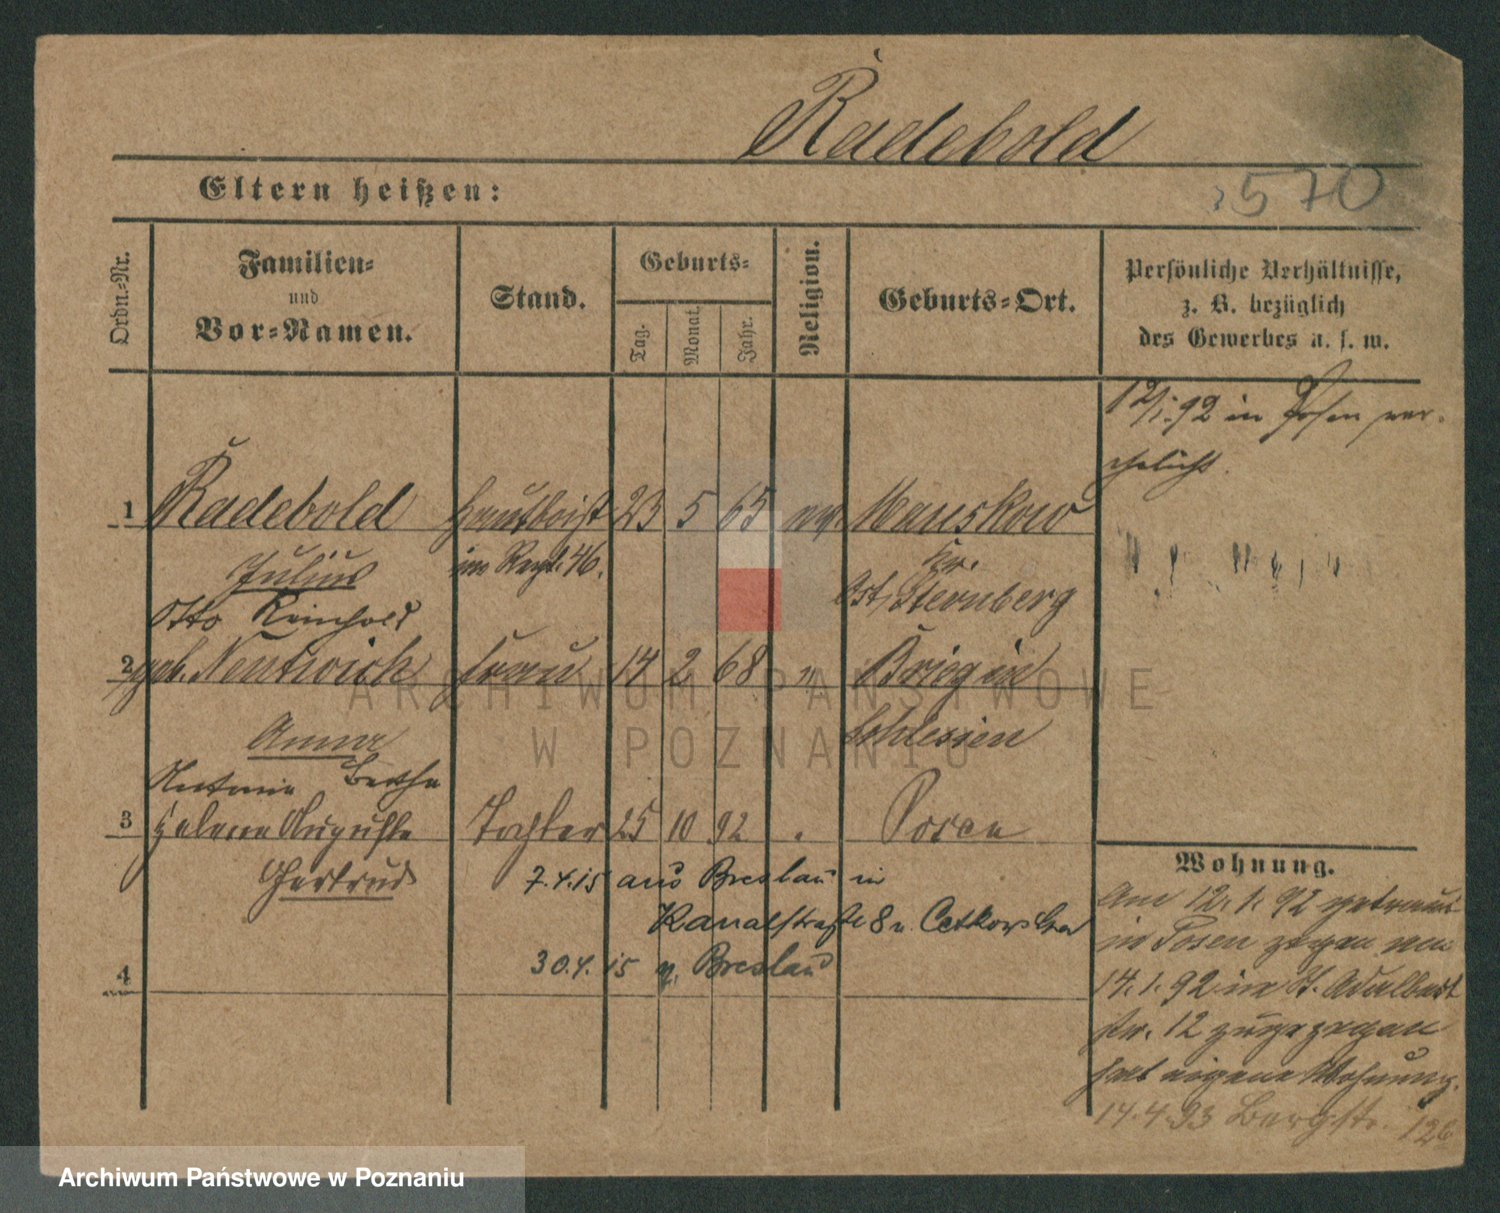 Radebold
Eltern heißen:
570
Ordn.-Nr.
Familien-
und
Vor-Namen.
Stand.
Geburts-
Tag.
Monat.
Jahr.
Religion.
Geburts-Ort.
Persönliche Verhältnisse,
z. B. bezüglich
des Gewerbes u. s. w.
12/1. 92 in Posen ver-
ehelicht.
1 Radebold Hautboist 23 5 65 ev. Mauskow
Julius im Regt. 46. Kr.
Otto Reinhold Ost Sternberg
2 geb. Nentwick Frau 14 2 68 " Brieg in
Anna Schlesien
Antonie Bertha
3 Helene Auguste Tochter 25 10 92 Posen
Gertrud
7.4.15 aus Breslau in
Kanalstraße 8 b.
30.4.15 n. Breslau
4
Wohnung.
Am 12. 1. 92 getraut
in Posen zogen am
14. 1. 92 in St. Adalbert
str. 12 zugezogen
hat eigene Wohnung.
14.4.93 Bergstr. 12b
ARCHIWUM PAŃSTWOWE
W POZNANIU
Archiwum Państwowe w Poznaniu